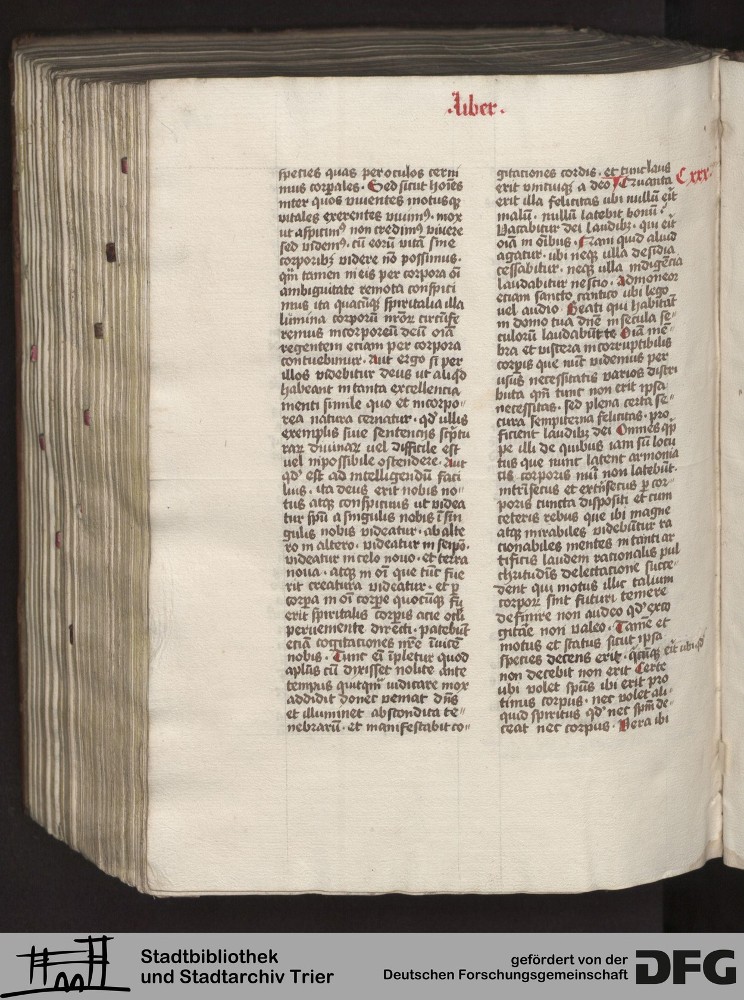 Liber.
species quas per oculos cerni
mus corpales. Sed sicut hoies
inter quos viventes motusq̄
vitales exerentes vivim⁹. mox
ut aspitim⁹ non credim⁹ vivere
sed videm⁹. cū eorū vitā sine
corporibꝫ videre nō possimus.
qm̄ tamen in eis per corpora oī
ambiguitate remota conspici
mus ita quacūqꝫ spiritalia illa
lumina corporū nrōꝝ circūfe
remus incorporeū deū oīa
regentem etiam per corpora
contuebimur. Aut ergo sī per
illos videbitur deus ut aliqd
habeant in tanta excellencia
menti simile quo et incorpo-
rea natura cernatur. qd̄ ullis
exemplis sive sentencijs scptu
raꝝ divinaꝝ vel difficile est
vel inpossibile ostendere. Aut
qd̕ est ad intelligendū faci
lius. ita deus erit nobis no-
tus atqꝫ conspicuus ut videa
tur spū a singulis nobis ī sin
gulis nobis videatur. ab alte
ro in altero. videatur in seipō.
videatur in celo novo. et terra
nova. atqꝫ in oī que tūc fue
rit creatura videatur. et p̄
corpa in oī corpe quocūqꝫ fu
erit spiritalis corpis acie otli
perviemente directi. patebūt
etiā cogitaciones nrē īvicē
nobis. Tunc eī īpletur quod
aplūs cū dixisset nolite ante
tempus quitqm̄ iudicare mox
addidit donec veniat dn̄s
et illuminet abscondita te-
nebrarū. et manifestabit co-
gitaciones cordis. et tunc laus
erit unicuiqꝫ a deo. Cvanta Cxxx.
erit illa felicitas ubi nullū eīt
malū. nullū latebit bonū.
Vacabitur dei laudibꝫ. qui eīt
oīā in oībus. Nam quid aliud
agatur. ubi neqꝫ ulla desidia
cessabitur. neqꝫ ulla indigēcia
laudabitur nescio. Admoneor
etiam sancto cantico ubi lego
vel audio. Beati qui habitāt
in domo tua dn̄e in secula se-
culorū laudabūt te. Oīā mē-
bra et viscera incorruptibilis
corpis que nūc videmus per
usus necessitatis varios distri
buta qm̄ tunc non erit ipsa
necessitas. sed plena certa se-
cura sempiterna felicitas. pro
ficient laudibꝫ dei. Omnes qp̄
pe illi de quibus iam sū locu
tus que nunc latent armonia
cis corporis nūi non latebūt.
intrīsecus et extrīsecus p̄ cor-
poris cuncta dispositi et cum
ceteris rebus que ibi magne
atqꝫ mirabiles videbūtur ra
cionabiles mentes in tanti ar
tificis laudem rationalis pul
chritudīs delectacione succe-
dent. qui motus illic talium
corpoꝝ sint futuri temere
definire non audeo qd̕ exco
gitare non valeo. Tamē et
motus et status sicut ipsa
species decens erit. quicūqꝫ eīt ubi qd̕
non decebit non erit. Certe
ubi volet spūs ibi erit pro
tinus corpus. nec volet ali-
quid spiritus qd̕ nec spm̄ de-
ceat nec corpus. Vera ibi
Stadtbibliothek
und Stadtarchiv Trier
gefördert von der
Deutschen Forschungsgemeinschaft
DFG